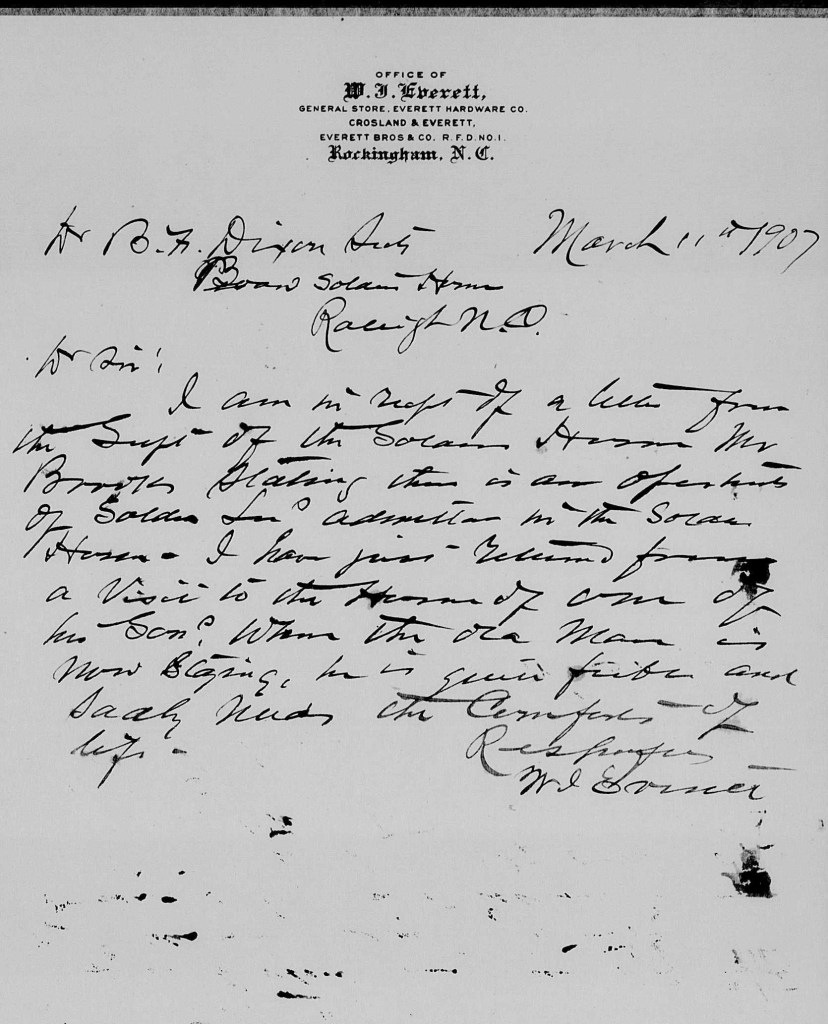 OFFICE OF
W. I. Everett,
GENERAL STORE, EVERETT HARDWARE CO.
CROSLAND & EVERETT,
EVERETT BROS & CO. R. F. D. NO. 1.
Rockingham, N. C.
Dr B. F. Dixon March 11th 1907
Board Soldiers Home
Raleigh N.C.
Dr Sir!
I am in rect of a letter from
the Supt of the Soldiers Home Mr
Brooks Stating there is an
of Soldier admitted in the Soldiers
Home - I have just returned from
a Visit to the Home of one of
his Sons. Where the old Man is
now Staying, he is quite feeble and
Sadly Needs the Comforts of
life -
Respectfully
W I Everett